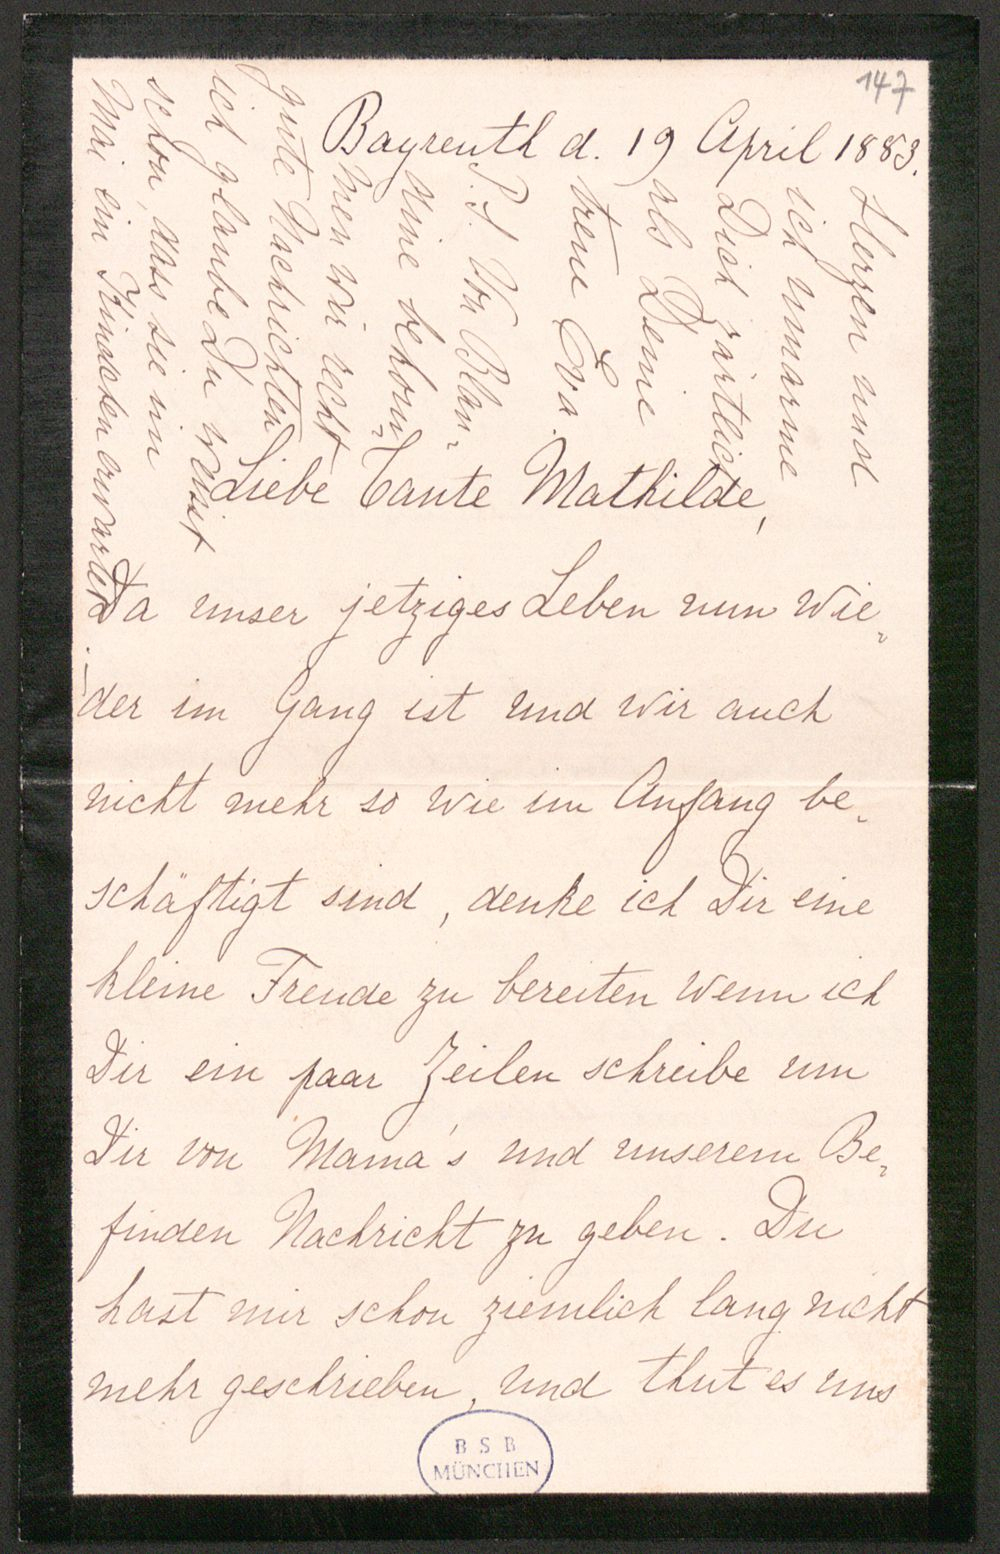 147
Bayreuth d. 19 April 1883.
Liebe Tante Mathilde,
Da unser jetziges Leben nun wie-
der im Gang ist und wir auch
nicht mehr so wie im Anfang be-
schäftigt sind, denke ich Dir eine
kleine Freude zu bereiten wenn ich
Dir ein paar Zeilen schreibe um
Dir von Mama's und unserem Be-
finden Nachricht zu geben. Du
hast mir schon ziemlich lang nicht
mehr geschrieben, und thut es uns
Herzen und
ich umarme
Dich zärtlich
als Deine
treue Eva.
P. S. Von Blan-
dine bekom-
men wir recht
gute Nachrichten
ich glaube Du weisst
schon, dass sie im
Mai ein Kindchen erwartet.
BSB
MÜNCHEN